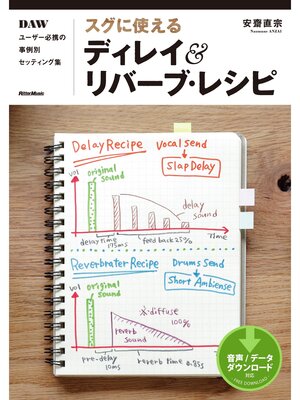 DAW
ユーザー必携の
事例別
セッティング集
RittorMusic
スグに使える
安齋直宗
Naomune ANZAI
ディレイ&
リバーブ・レシピ
Delay Recipe
Vocal Send
Slap Delay
vol
original
sound
delay
sound
Time
delay time
175ms
feed back 25%
Reverbrater Recipe
Drums Send
Short Ambiense
vol
original
sound
※diffuse
100%
reverb
sound
pre-delay
10ms
reverb time 0.85s
音声/データ
ダウンロード
対応
FREE DOWNLOAD